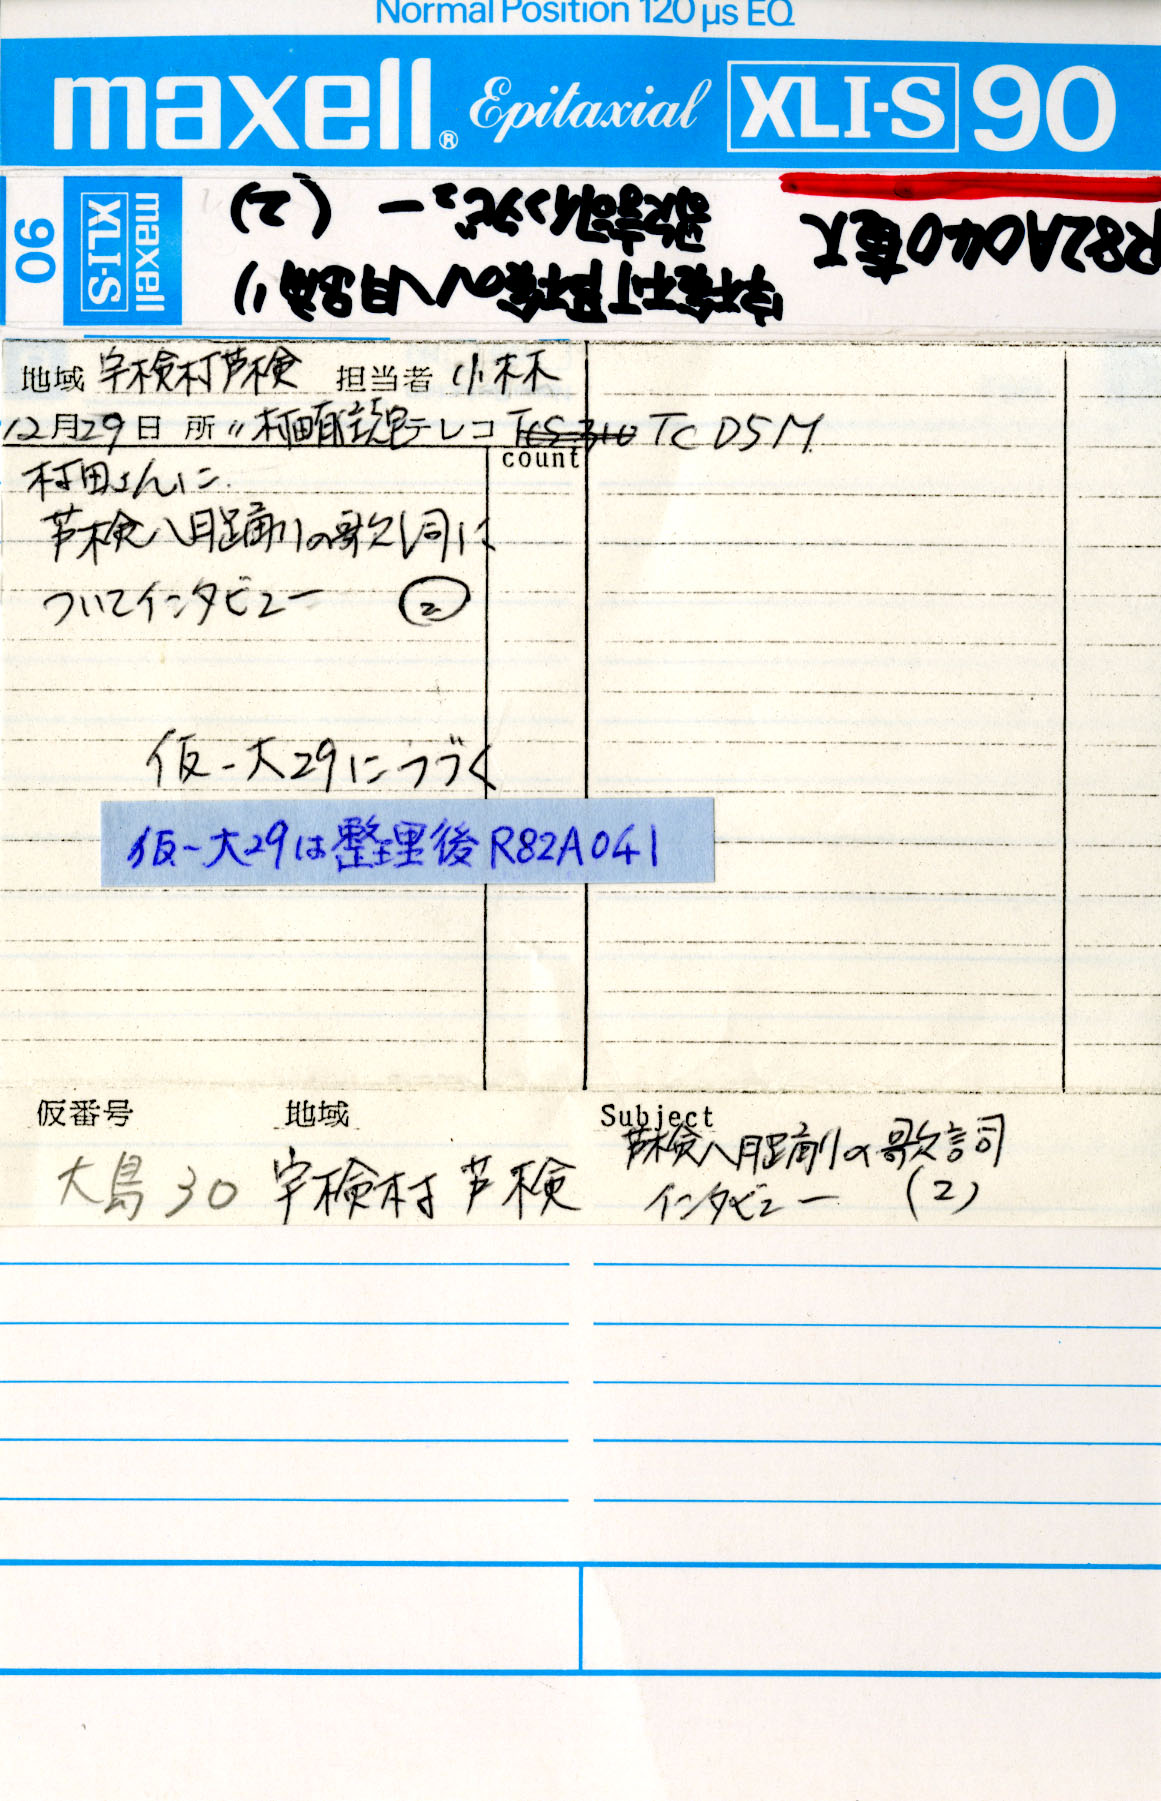 Normal Position 120 µs EQ
maxell® Epitaxial XLI-S 90
90 XLI-S maxell
R82A040
宇検村芦検の八月踊り
歌詞インタビュー (2)
地域 宇検村芦検 担当者 小林
12月29日 所〃 テレコ TCS-310 TC D5M
count
村田さんに
芦検八月踊りの歌詞に
ついてインタビュー ②
仮-大29につづく
仮-大29は整理後R82A041
仮番号 地域 Subject
大島30 宇検村芦検 芦検八月踊りの歌詞
インタビュー (2)